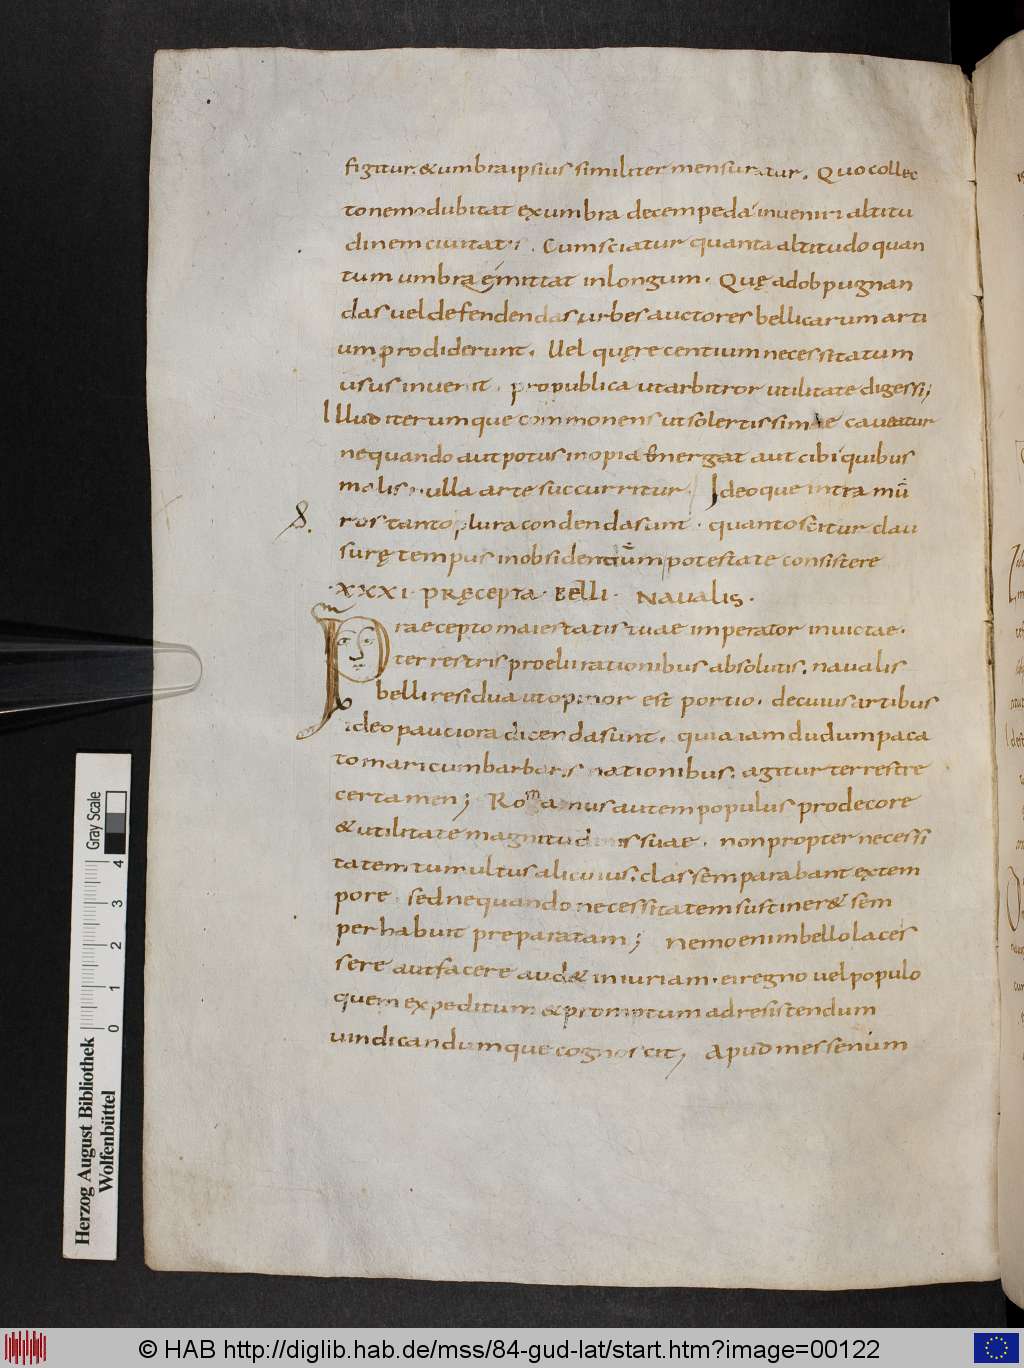 figitur. & umbra ipsius similiter mensuratur. Quo collec
to nemo dubitat ex umbra decempedae inueniri altitu
dinem ciuitatis. Cum sciatur quanta altitudo quan
tum umbrae emittat in longum. Quę ad obpugnan
das uel defendendas urbes auctores bellicarum arti
um prodiderunt. Uel quę recentium necessitatum
usus inuenit. pro publica ut arbitror utilitate digessi;
Illud iterumque commonens ut solertissimae caueatur
ne quando aut potus inopia emergat aut cibi quibus
malis nulla arte succurritur. Ideoque intra mū
ros tanto plura condenda sunt. quanto scitur clau
surę tempus in obsidentium potestate consistere
.XXXI. PRęCEPTA. BELLI. NAVALIS.
Praecepto maiestatis tuae imperator inuictae.
terrestris proelii rationibus absolutis. naualis
belli residua ut opinor est portio. de cuius artibus
ideo pauciora dicenda sunt. quia iam dudum paca
to mari cum barbaris nationibus. agitur terrestre
certamen; Romanus autem populus pro decore
& utilitate magnitudinis suae. non propter necessi
tatem tumultus alicuius. classem parabant ex tem
pore. sed ne quando necessitatem sustiner& sem
per habuit preparatam; Nemo enim bello laces
sere aut facere aud& iniuriam. ei regno uel populo
quem expeditum & promptum ad resistendum
uindicandumque cognoscit; Apud messenium
Gray Scale
0 1 2 3 4
Herzog August Bibliothek
Wolfenbüttel
© HAB http://diglib.hab.de/mss/84-gud-lat/start.htm?image=00122